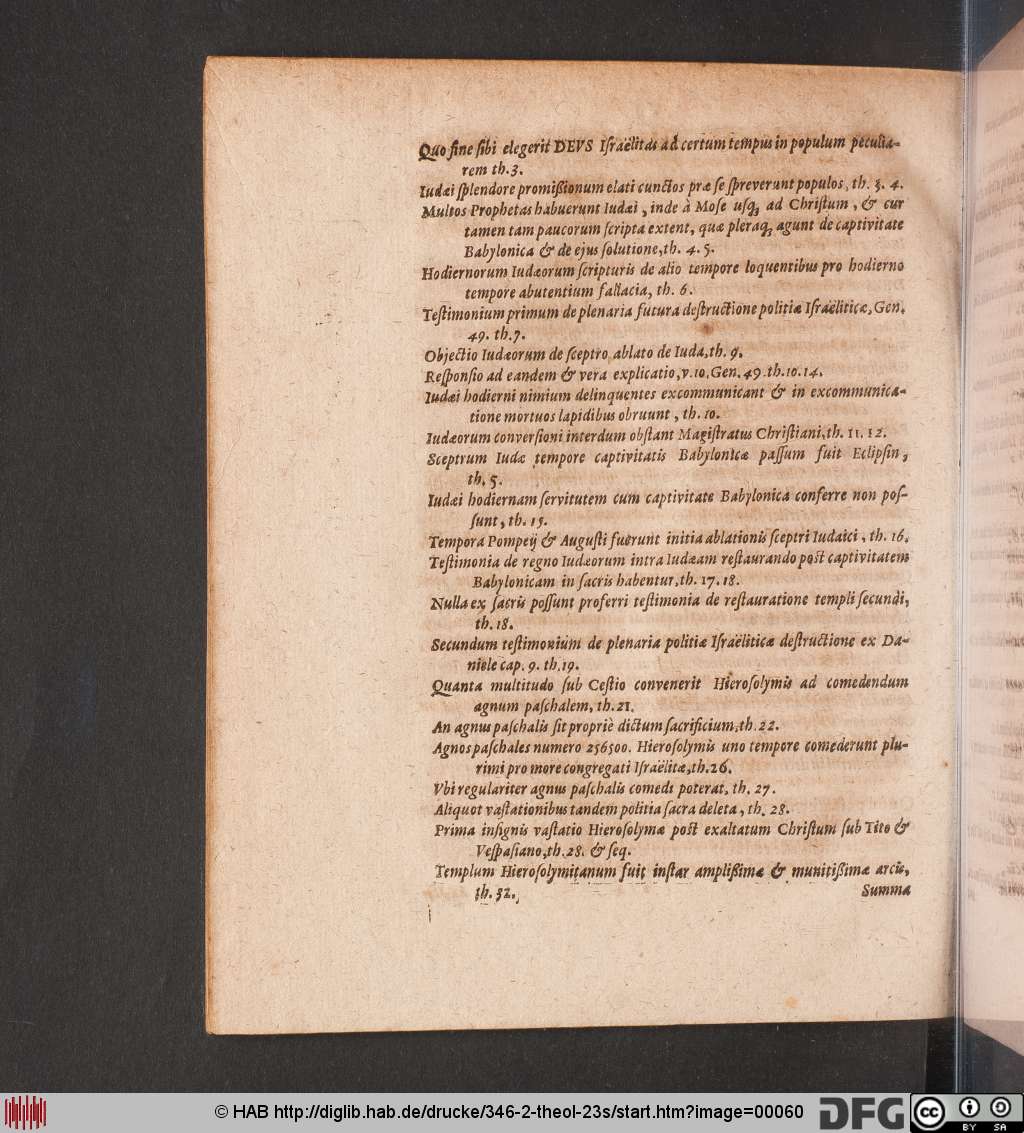 Quo fine ſibi elegerit DEVS Iſraëlitas ad certum tempus in populum peculia-
rem th. 3.
Iudæi ſplendore promißionum elati cunctos præ ſe ſpreverunt populos, th. 3. 4.
Multos Prophetas habuerunt Iudæi, inde à Moſe uſq; ad Chriſtum, & cur
tamen tam paucorum ſcripta extent, quæ pleraq; agunt de captivitate
Babylonica & de ejus ſolutione, th. 4. 5.
Hodiernorum Iudæorum ſcripturis de alio tempore loquentibus pro hodierno
tempore abutentium fallacia, th. 6.
Teſtimonium primum de plenaria futura deſtructione politiæ Iſraëliticæ, Gen.
49. th. 7.
Objectio Iudæorum de ſceptro ablato de Iuda, th. 9.
Reſponſio ad eandem & vera explicatio, v. 10. Gen. 49. th. 10. 14.
Iudæi hodierni nimium delinquentes excommunicant & in excommunica-
tione mortuos lapidibus obruunt, th. 10.
Iudæorum converſioni interdum obſtant Magiſtratus Chriſtiani, th. 11. 12.
Sceptrum Iudæ tempore captivitatis Babylonicæ paſſum fuit Eclipſin,
th. 5.
Iudæi hodiernam ſervitutem cum captivitate Babylonica conferre non poſ-
ſunt, th. 15.
Tempora Pompeij & Auguſti fuerunt initia ablationis ſceptri Iudaici, th. 16.
Teſtimonia de regno Iudæorum intra Iudæam reſtaurando poſt captivitatem
Babylonicam in ſacris habentur, th. 17. 18.
Nulla ex ſacris poſſunt proferri teſtimonia de reſtauratione templi ſecundi,
th. 18.
Secundum teſtimonium de plenaria politiæ Iſraëliticæ deſtructione ex Da-
niele cap. 9. th. 19.
Quanta multitudo ſub Ceſtio convenerit Hieroſolymis ad comedendum
agnum paſchalem, th. 21.
An agnus paſchalis ſit propriè dictum ſacrificium, th. 22.
Agnos paſchales numero 256500. Hieroſolymis uno tempore comederunt plu-
rimi pro more congregati Iſraëlitæ, th. 26.
Vbi regulariter agnus paſchalis comedi poterat, th. 27.
Aliquot vaſtationibus tandem politia ſacra deleta, th. 28.
Prima inſignis vaſtatio Hieroſolymæ poſt exaltatum Chriſtum ſub Tito &
Veſpaſiano, th. 28. & ſeq.
Templum Hieroſolymitanum fuit inſtar amplißimæ & munitißimæ arcis,
th. 32.
Summa
© HAB http://diglib.hab.de/drucke/346-2-theol-23s/start.htm?image=00060
DFG
cc
BY SA